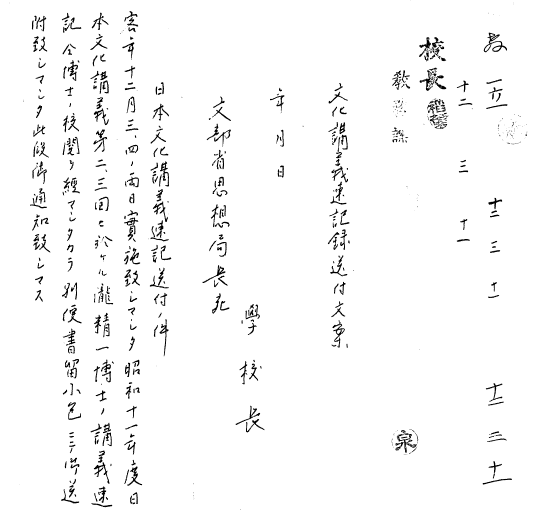 教 一六一 十二 三 十一 十二 三 十一
十二 三 十一
校長
教務課 泉
文化講義速記録送付文案
年 月 日
學校長
文部省思想局長宛
日本文化講義速記送付ノ件
客年十二月三、四ノ兩日實施致シマシタ昭和十一年度日
本文化講義第二、三回ニ於ケル瀧精一博士ノ講義速
記今博士ノ校閲ヲ經マシタカラ別便書留小包ニテ御送
附致シマシタ此段御通知致シマス